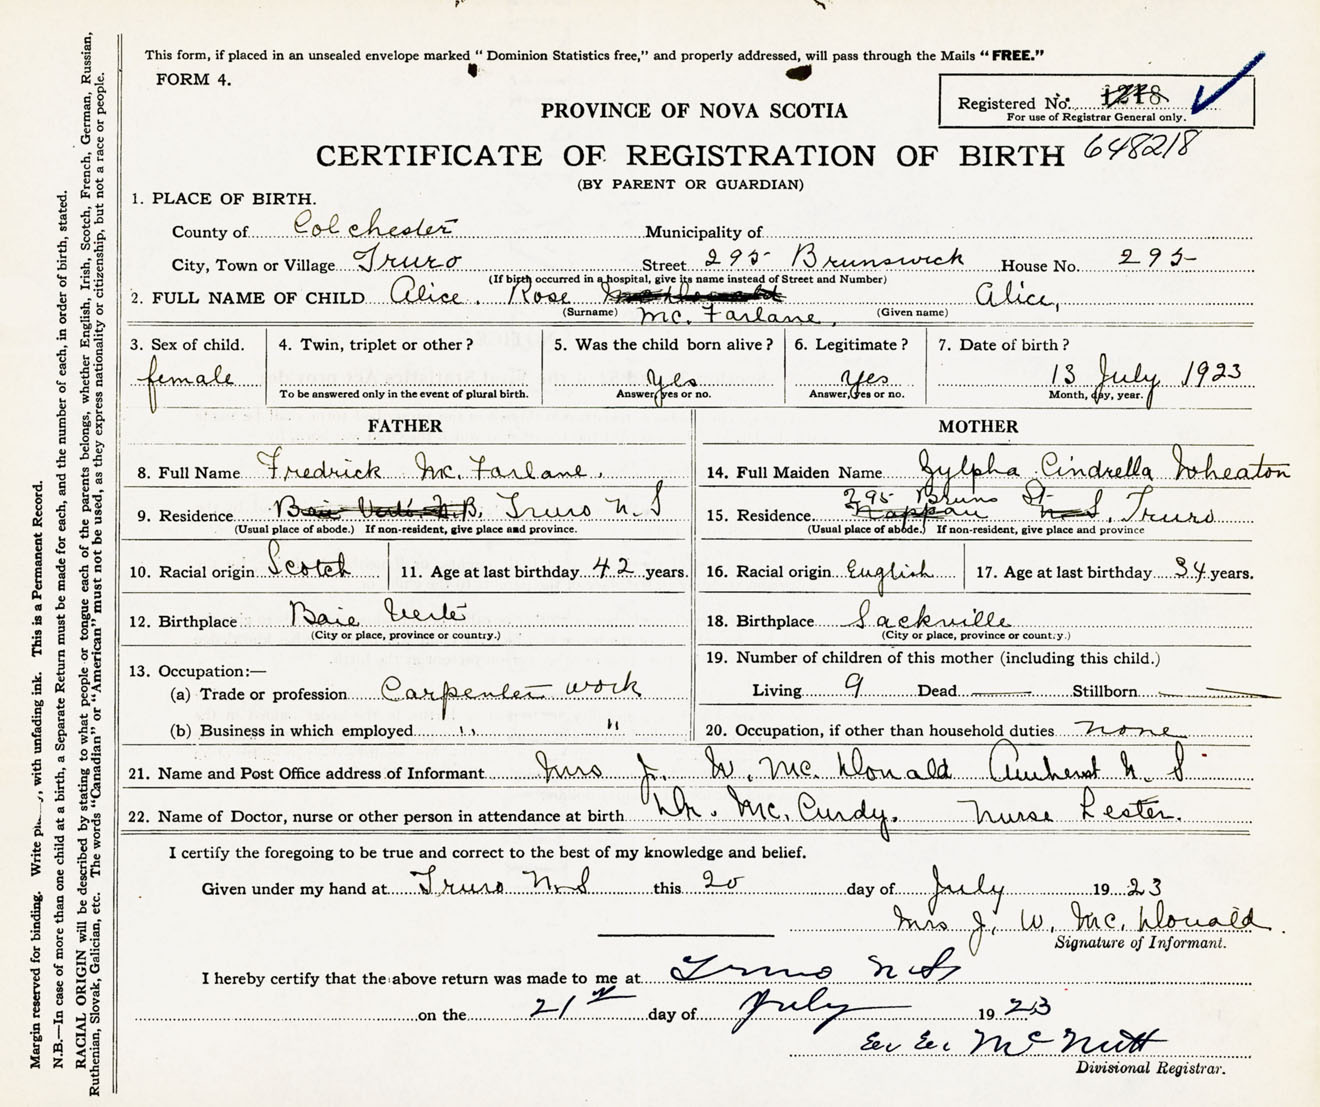 This form, if placed in an unsealed envelope marked " Dominion Statistics free," and properly addressed, will pass through the Mails "FREE."
FORM 4.
Registered No. 1218
For use of Registrar General only.
PROVINCE OF NOVA SCOTIA
CERTIFICATE OF REGISTRATION OF BIRTH 648218
(BY PARENT OR GUARDIAN)
1. PLACE OF BIRTH.
County of Colchester Municipality of
City, Town or Village Truro Street 295 Brunswick House No. 295
(If birth occurred in a hospital, give its name instead of Street and Number)
2. FULL NAME OF CHILD Alice. Rose Alice,
(Surname) Mc. Farlane, (Given name)
3. Sex of child. 4. Twin, triplet or other? 5. Was the child born alive? 6. Legitimate? 7. Date of birth?
female Yes Yes 13 July 1923
To be answered only in the event of plural birth. Answer, yes or no. Answer, yes or no. Month, day, year.
FATHER MOTHER
8. Full Name Fredrick Mc. Farlane, 14. Full Maiden Name Zylpha Cindrella Wheaton
295 Bruns St
9. Residence Baie Verte N.B. Truro N.S 15. Residence Nappan N.S, Truro
(Usual place of abode.) If non-resident, give place and province. (Usual place of abode.) If non-resident, give place and province
10. Racial origin Scotch 11. Age at last birthday 42 years. 16. Racial origin English 17. Age at last birthday 34 years.
12. Birthplace Baie Verte 18. Birthplace Sackville
(City or place, province or country.) (City or place, province or country.)
13. Occupation:— 19. Number of children of this mother (including this child.)
(a) Trade or profession Carpenter work Living 9 Dead — Stillborn —
(b) Business in which employed " " 20. Occupation, if other than household duties none
21. Name and Post Office address of Informant Mrs J. W. Mc. Donald Amherst N. S
22. Name of Doctor, nurse or other person in attendance at birth Dr. Mc. Curdy. Nurse Lester.
I certify the foregoing to be true and correct to the best of my knowledge and belief.
Given under my hand at Truro N.S this 20 day of July 1923
Mrs J. W. Mc. Donald
Signature of Informant.
I hereby certify that the above return was made to me at Truro N S
on the 21st day of July 1923
McNutt
Divisional Registrar.
Margin reserved for binding. Write with unfading ink. This is a Permanent Record.
N.B.—In case of more than one child at a birth, a Separate Return must be made for each, and the number of each, in order of birth, stated.
RACIAL ORIGIN will be described by stating to what people or tongue each of the parents belongs, whether English, Irish, Scotch, French, German, Russian,
Ruthenian, Slovak, Galician, etc. The words "Canadian" or "American" must not be used, as they express nationality or citizenship, but not a race or people.